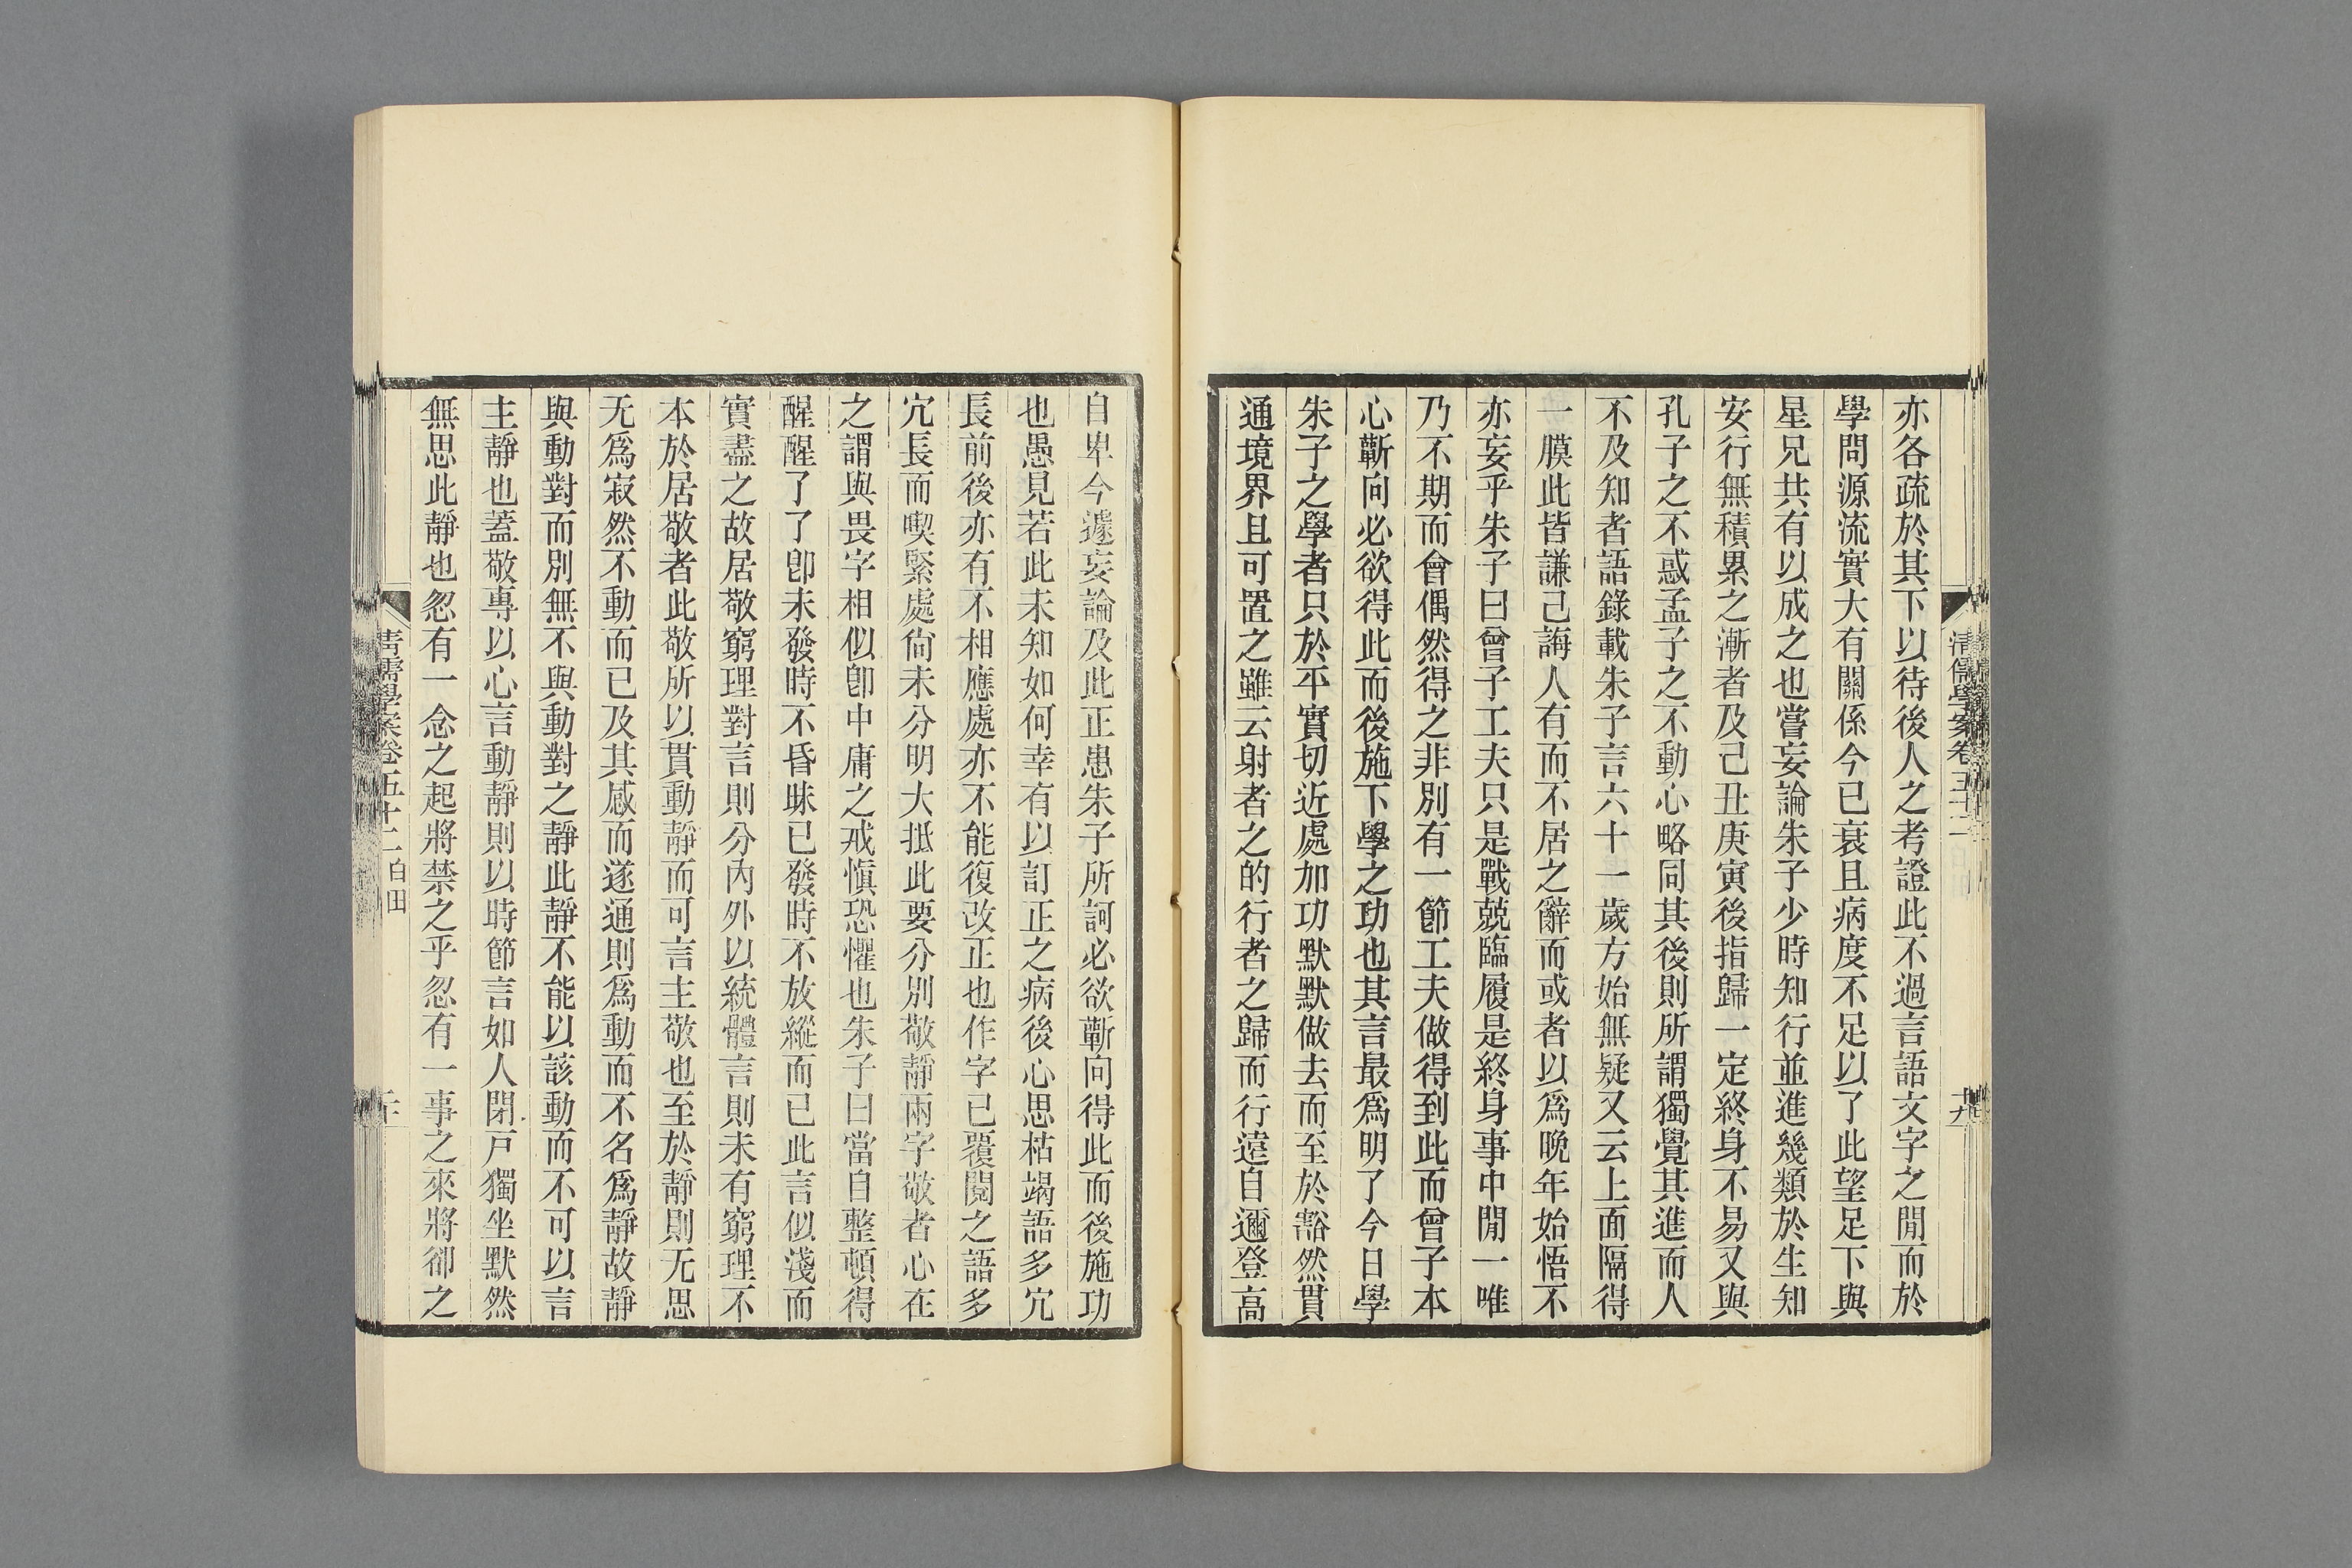 亦各疏於其下以待後人之考證此不過言語文字之閒而於
學問源流實大有關係今已衰且病度不足以了此望足下與
星兄共有以成之也嘗妄論朱子少時知行並進幾類於生知
安行無積累之漸者及己丑庚寅後指歸一定終身不易又與
孔子之不惑孟子之不動心略同其後則所謂獨覺其進而人
不及知者語錄載朱子言六十一歲方始無疑又云上面隔得
一膜此皆謙己誨人有而不居之辭而或者以爲晚年始悟不
亦妄乎朱子曰曾子工夫只是戰兢臨履是終身事中閒一唯
乃不期而會偶然得之非別有一節工夫做得到此而曾子本
心蘄向必欲得此而後施下學之功也其言最爲明了今日學
朱子之學者只於平實切近處加功默默做去而至於豁然貫
通境界且可置之雖云射者之的行者之歸而行遠自邇登高
清儒學案卷五十二
十九
自卑今遽妄論及此正患朱子所訶必欲蘄向得此而後施功
也愚見若此未知如何幸有以訂正之病後心思枯竭語多冗
長前後亦有不相應處亦不能復改正也作字已覆閱之語多
冗長而喫緊處尙未分明大抵此要分別敬靜兩字敬者心在
之謂與畏字相似卽中庸之戒愼恐懼也朱子曰當自整頓得
醒醒了了卽未發時不昏昧已發時不放縱而已此言似淺而
實盡之故居敬窮理對言則分內外以統體言則未有窮理不
本於居敬者此敬所以貫動靜而可言主敬也至於靜則无思
无爲寂然不動而已及其感而遂通則爲動而不名爲靜故靜
與動對而別無不與動對之靜此靜不能以該動而不可以言
主靜也蓋敬專以心言動靜則以時節言如人閉戸獨坐默然
無思此靜也忽有一念之起將禁之乎忽有一事之來將卻之
清儒學案卷五十二 白田
二十